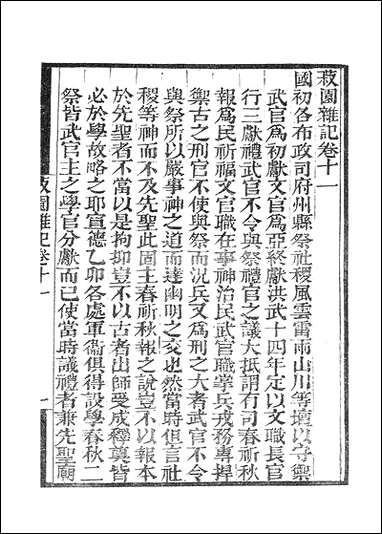 菽園雜記卷十一
國初各布政司府州縣祭社稷風雲雷雨山川等壇以守禦
武官爲初獻文官爲亞終獻洪武十四年定以文職長官
行三獻禮武官不令與祭禮官之議大抵謂有司春祈秋
報爲民祈福文官職在事神治民武官職掌兵戎務專捍
禦古之刑官不使與祭而況兵又爲刑之大者武官不令
與祭所以嚴事神之道而達幽明之交也然當時但言社
稷等神而不及先聖此固主春祈秋報之說豈不以報本
於先聖者不當以是拘抑豈不以古者出師受成釋奠皆
必於學故略之耶宣德乙卯各處軍衞俱得設學春秋二
祭皆武官主之學官分獻而已使當時議禮者兼先聖廟
菽園雜記卷十一
一